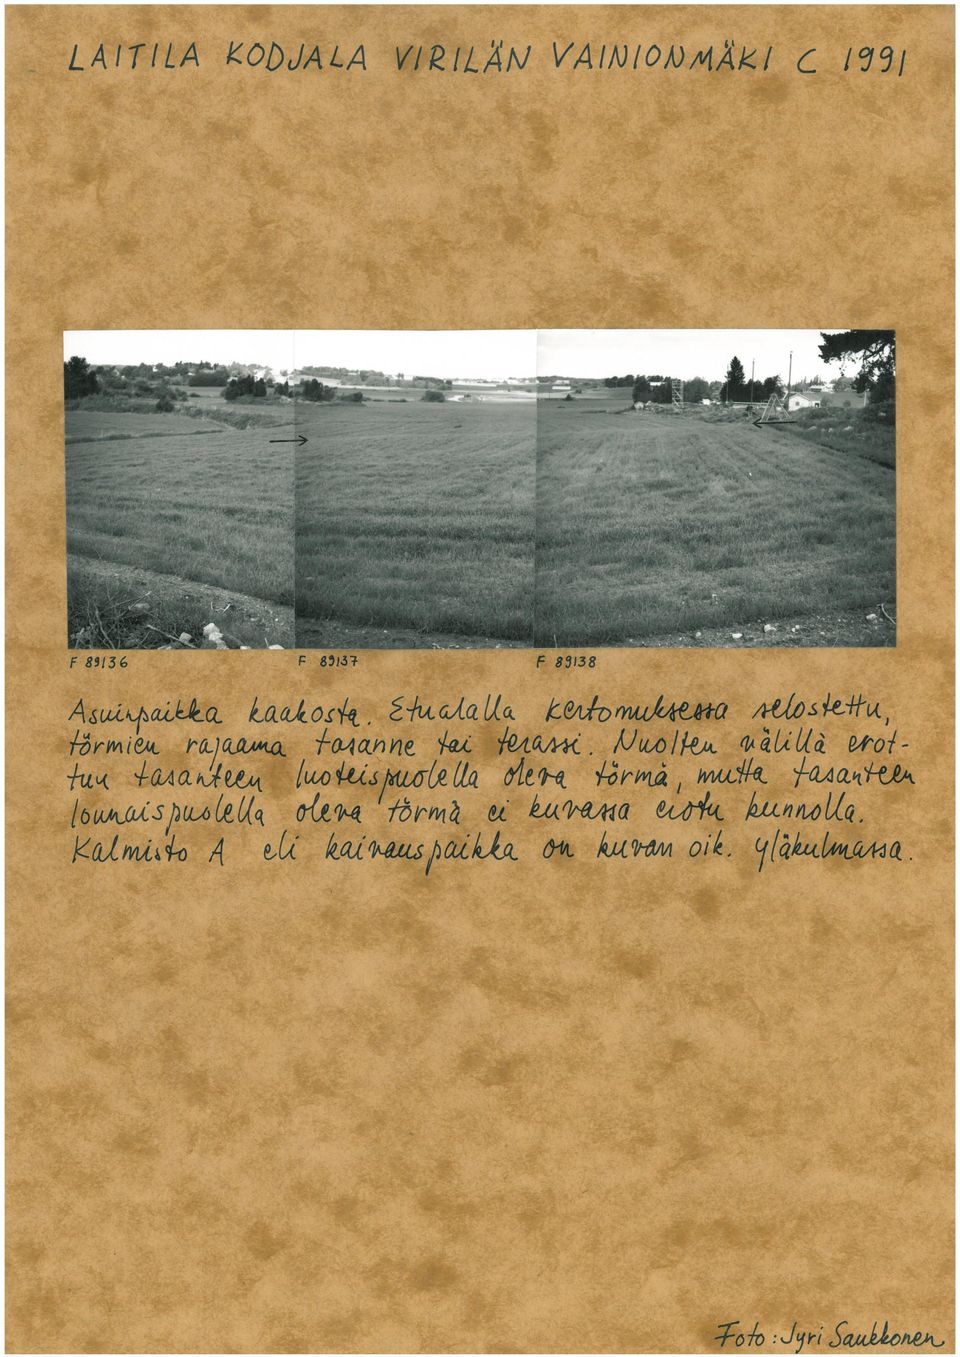 LAITILA KODJALA VIRILÄN VAINIONMÄKI C 1991
F 89136 F 89137 F 89138
Asuinpaikka kaakosta. Etualalla kertomuksessa selostettu,
törmien rajaama tasanne tai terassi. Nuolten välillä erot-
tuu tasanteen luoteispuolella oleva törmä, mutta tasanteen
lounaispuolella oleva törmä ei kuvassa erotu kunnolla.
Kalmisto A eli kaivauspaikka on kuvan oik. yläkulmassa.
Foto: Jyri Saukkonen